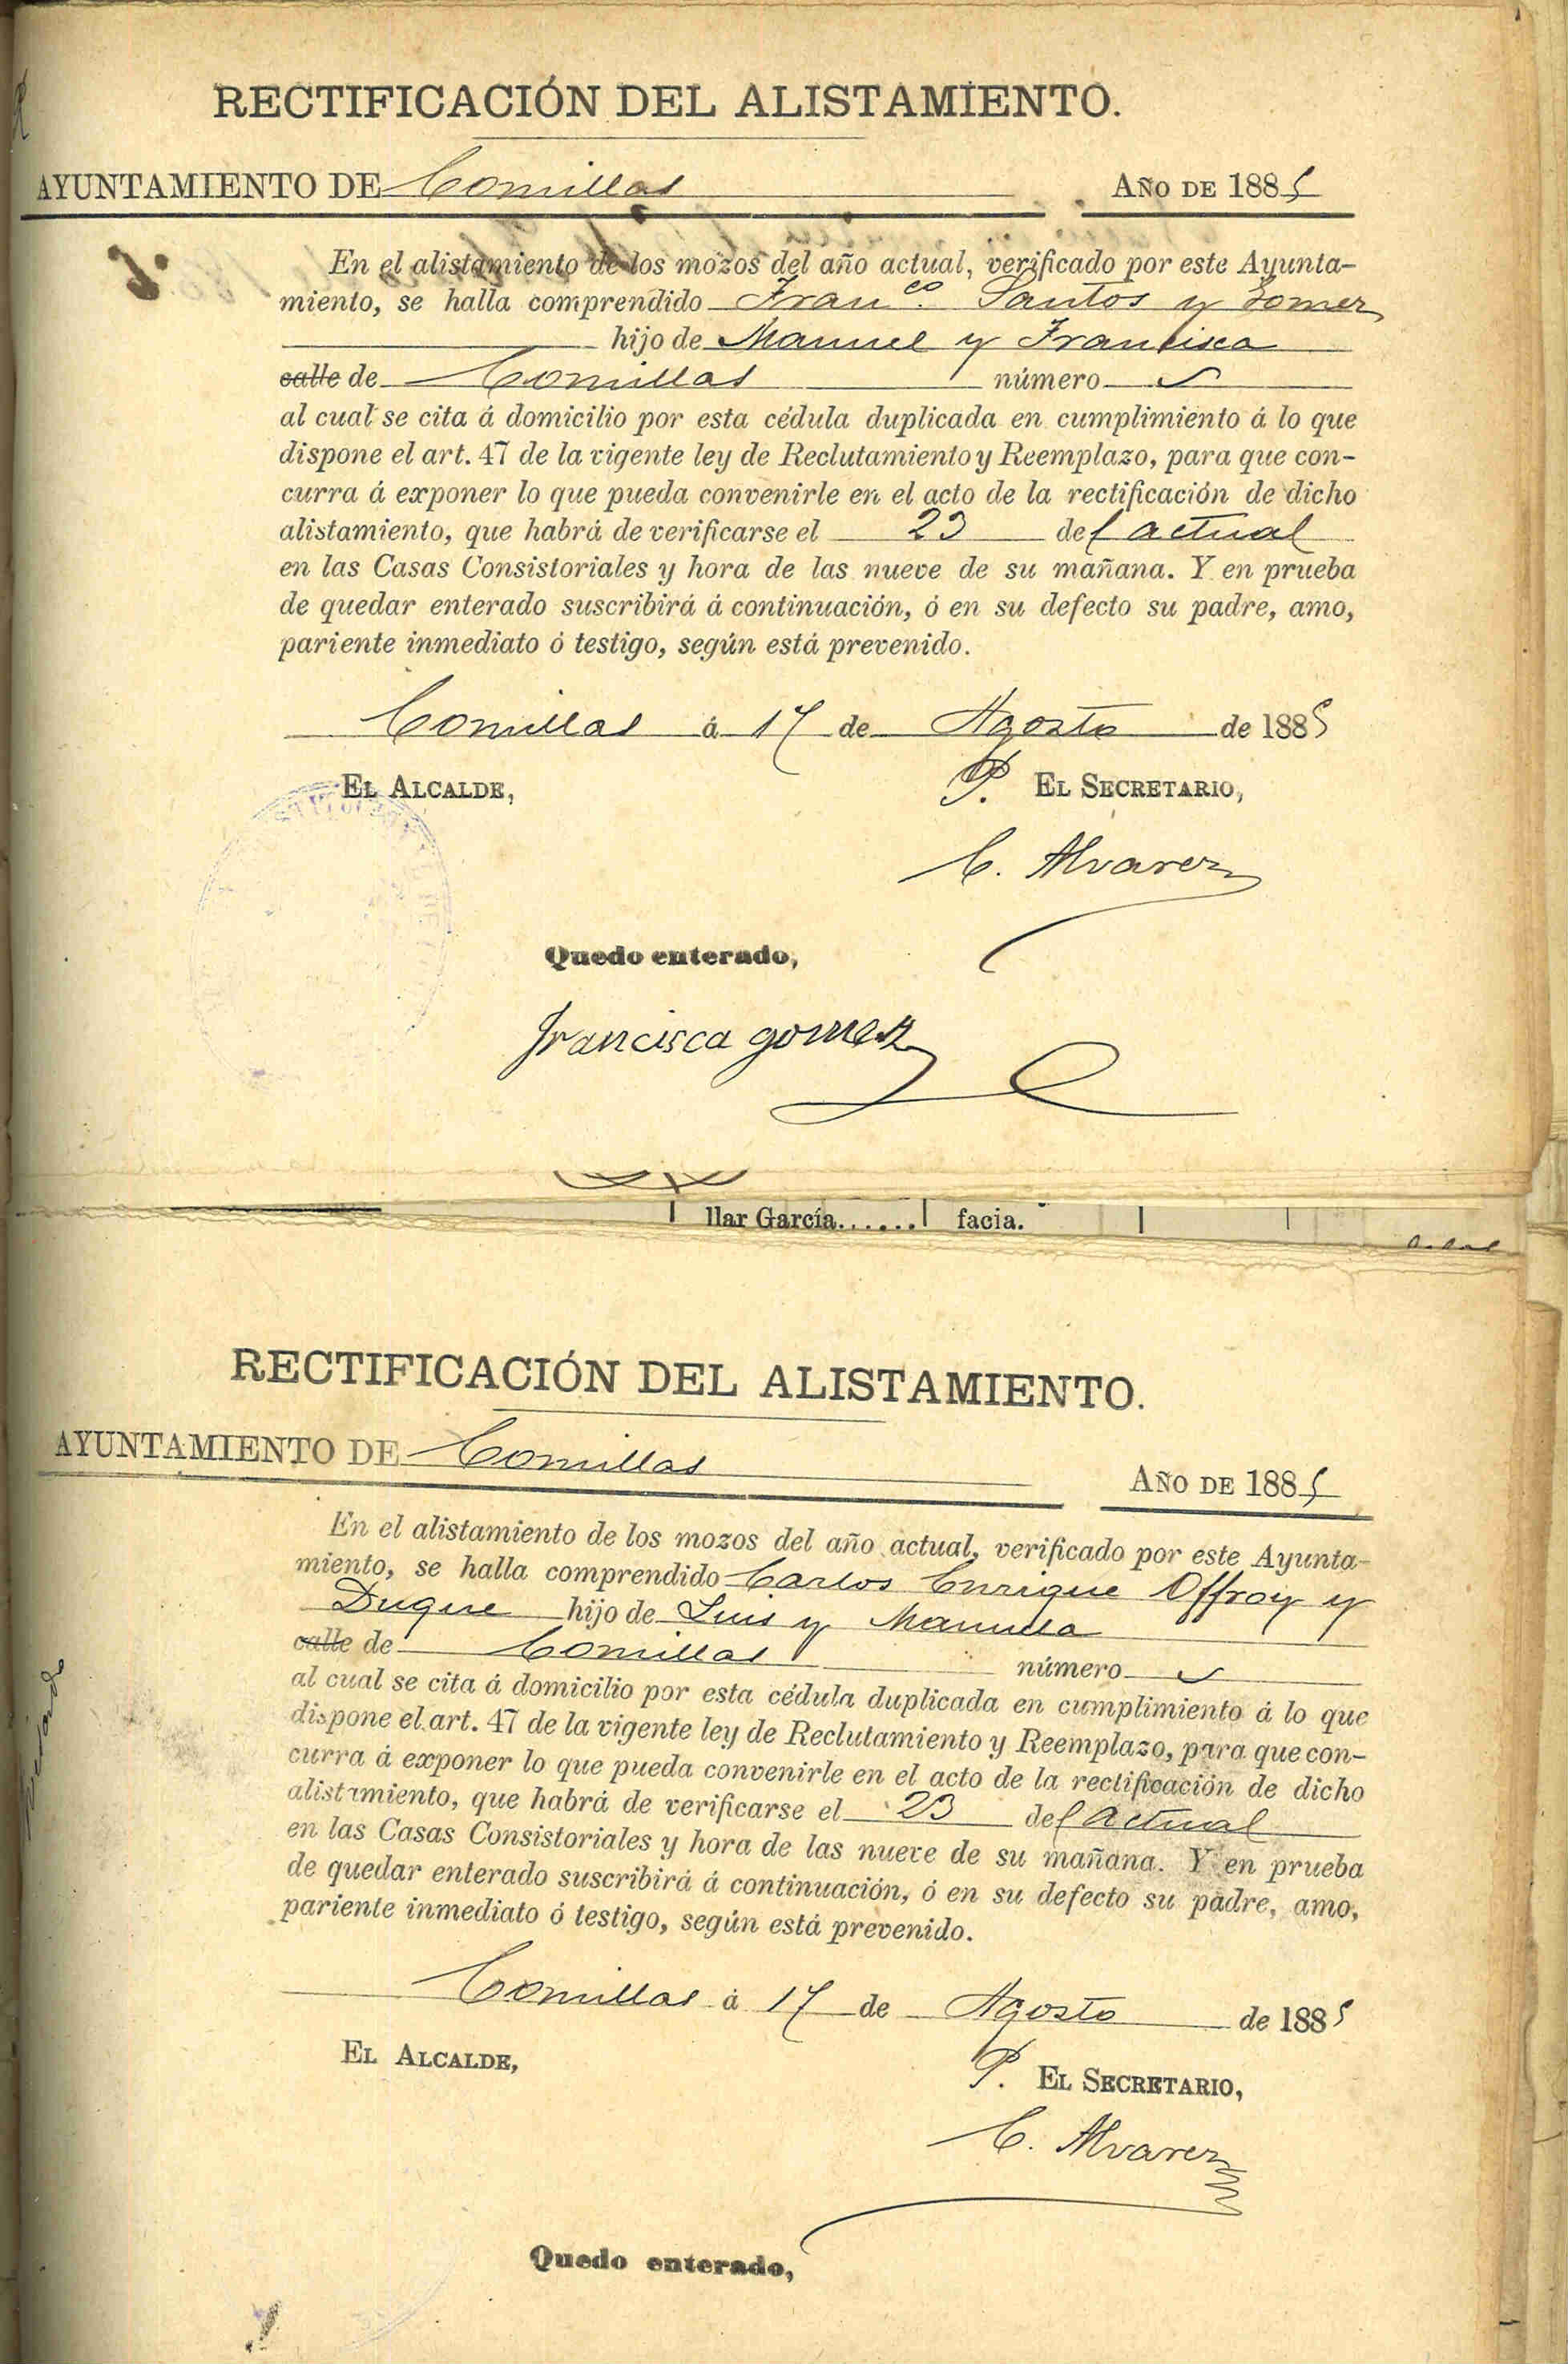 RECTIFICACIÓN DEL ALISTAMIENTO.
AYUNTAMIENTO DE Comillas AÑO DE 1885
En el alistamiento de los mozos del año actual, verificado por este Ayunta-
miento, se halla comprendido Franco. Santos y Gomez
hijo de Manuel y Francisca
calle de Comillas número
al cual se cita á domicilio por esta cédula duplicada en cumplimiento á lo que
dispone el art. 47 de la vigente ley de Reclutamiento y Reemplazo, para que con-
curra á exponer lo que pueda convenirle en el acto de la rectificación de dicho
alistamiento, que habrá de verificarse el 23 del actual
en las Casas Consistoriales y hora de las nueve de su mañana. Y en prueba
de quedar enterado suscribirá á continuación, ó en su defecto su padre, amo,
pariente inmediato ó testigo, según está prevenido.
Comillas á 17 de Agosto de 1885
EL ALCALDE, P. EL SECRETARIO,
C. Alvarez
Quedo enterado,
Francisca gomez
llar García...... facia.
RECTIFICACIÓN DEL ALISTAMIENTO.
AYUNTAMIENTO DE Comillas AÑO DE 1885
En el alistamiento de los mozos del año actual, verificado por este Ayunta-
miento, se halla comprendido Carlos Enrique Offroy y
Duque hijo de Luis y Manuela
calle de Comillas número
al cual se cita á domicilio por esta cédula duplicada en cumplimiento á lo que
dispone el art. 47 de la vigente ley de Reclutamiento y Reemplazo, para que con-
curra á exponer lo que pueda convenirle en el acto de la rectificación de dicho
alistamiento, que habrá de verificarse el 23 del actual
en las Casas Consistoriales y hora de las nueve de su mañana. Y en prueba
de quedar enterado suscribirá á continuación, ó en su defecto su padre, amo,
pariente inmediato ó testigo, según está prevenido.
Comillas á 17 de Agosto de 1885
EL ALCALDE, P. EL SECRETARIO,
C. Alvarez
Quedo enterado,